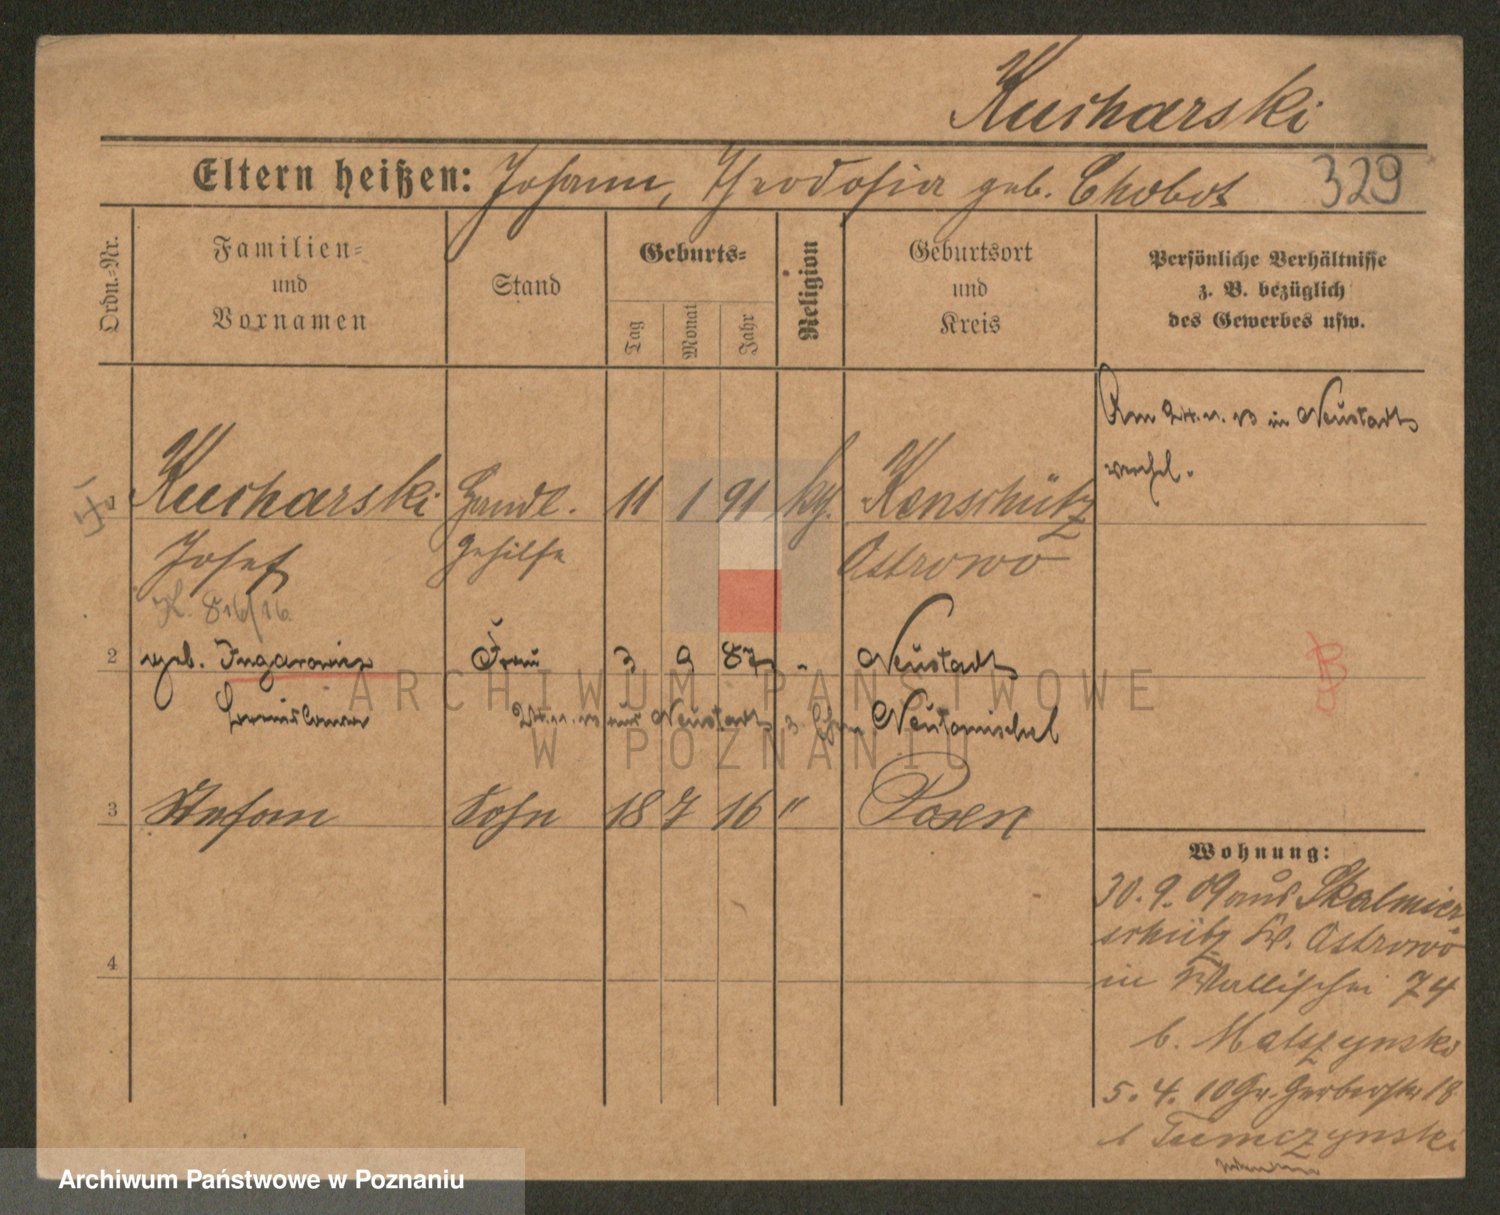 Kucharski
Eltern heißen: Johann, Theodosia geb. Chobot 329
Ordn.-Nr.
Familien-
und
Vornamen
Stand
Geburts-
Tag
Monat
Jahr
Religion
Geburtsort
und
Kreis
Persönliche Verhältnisse
z. B. bezüglich
des Gewerbes usw.
in Neustadt
Kucharski Handl. 11 1 91 kth. Kenschütz
Josef Gehilfe Ostrowo
K. 816/16.
2 geb. Ingarowicz Frau 3 9 87 " Neustadt
aus Neustadt Neutomischel
3 Stefan Sohn 18 7 16 " Posen
4
Wohnung:
30. 9. 09 aus Skalmier
schütz Kr. Ostrowo
in Wallischei 74
b. Malszynski
5. 4. 10 Gr. Gerberstr 18
b Tumczynski
ARCHIWUM PAŃSTWOWE
W POZNANIU
Archiwum Państwowe w Poznaniu